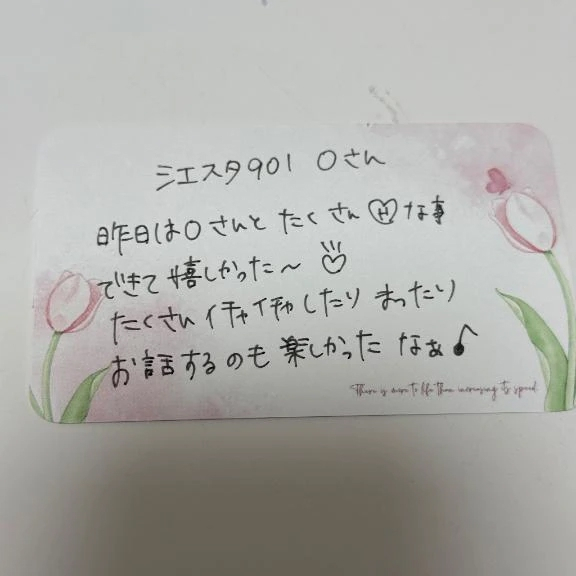 シエスタ901 Oさん
昨日はOさんと たくさん Hな事
できて 嬉しかった〜
たくさんイチャイチャしたり まったり
お話するのも 楽しかった なぁ♪
There is more to life than increasing its speed.